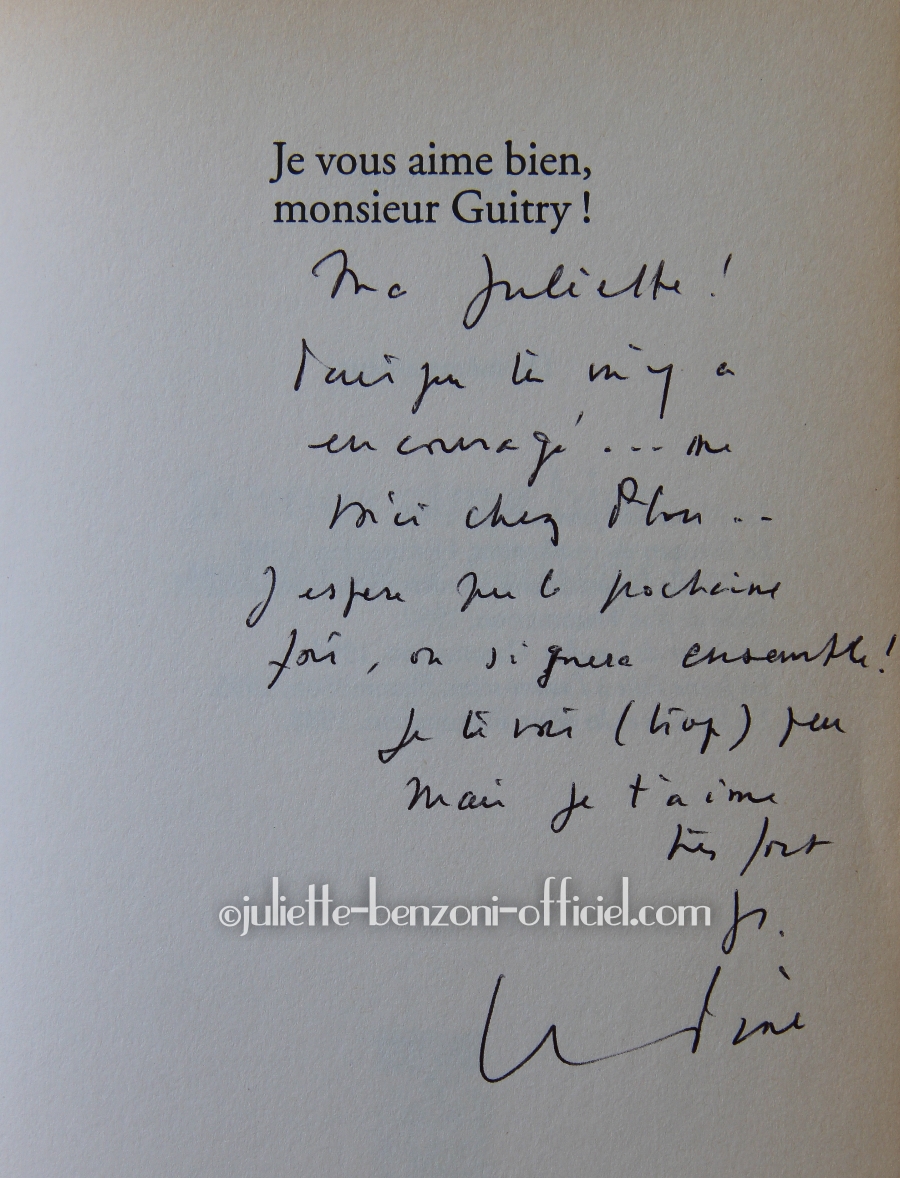 Je vous aime bien,
monsieur Guitry !
Ma Juliette !
Puisque tu m'y a
encouragé ... me
voici chez Plon ..
J'espère que la prochaine
fois, on signera ensemble !
Je te vois (trop) peu
Mais je t'aime
très fort
©juliette-benzoni-officiel.com